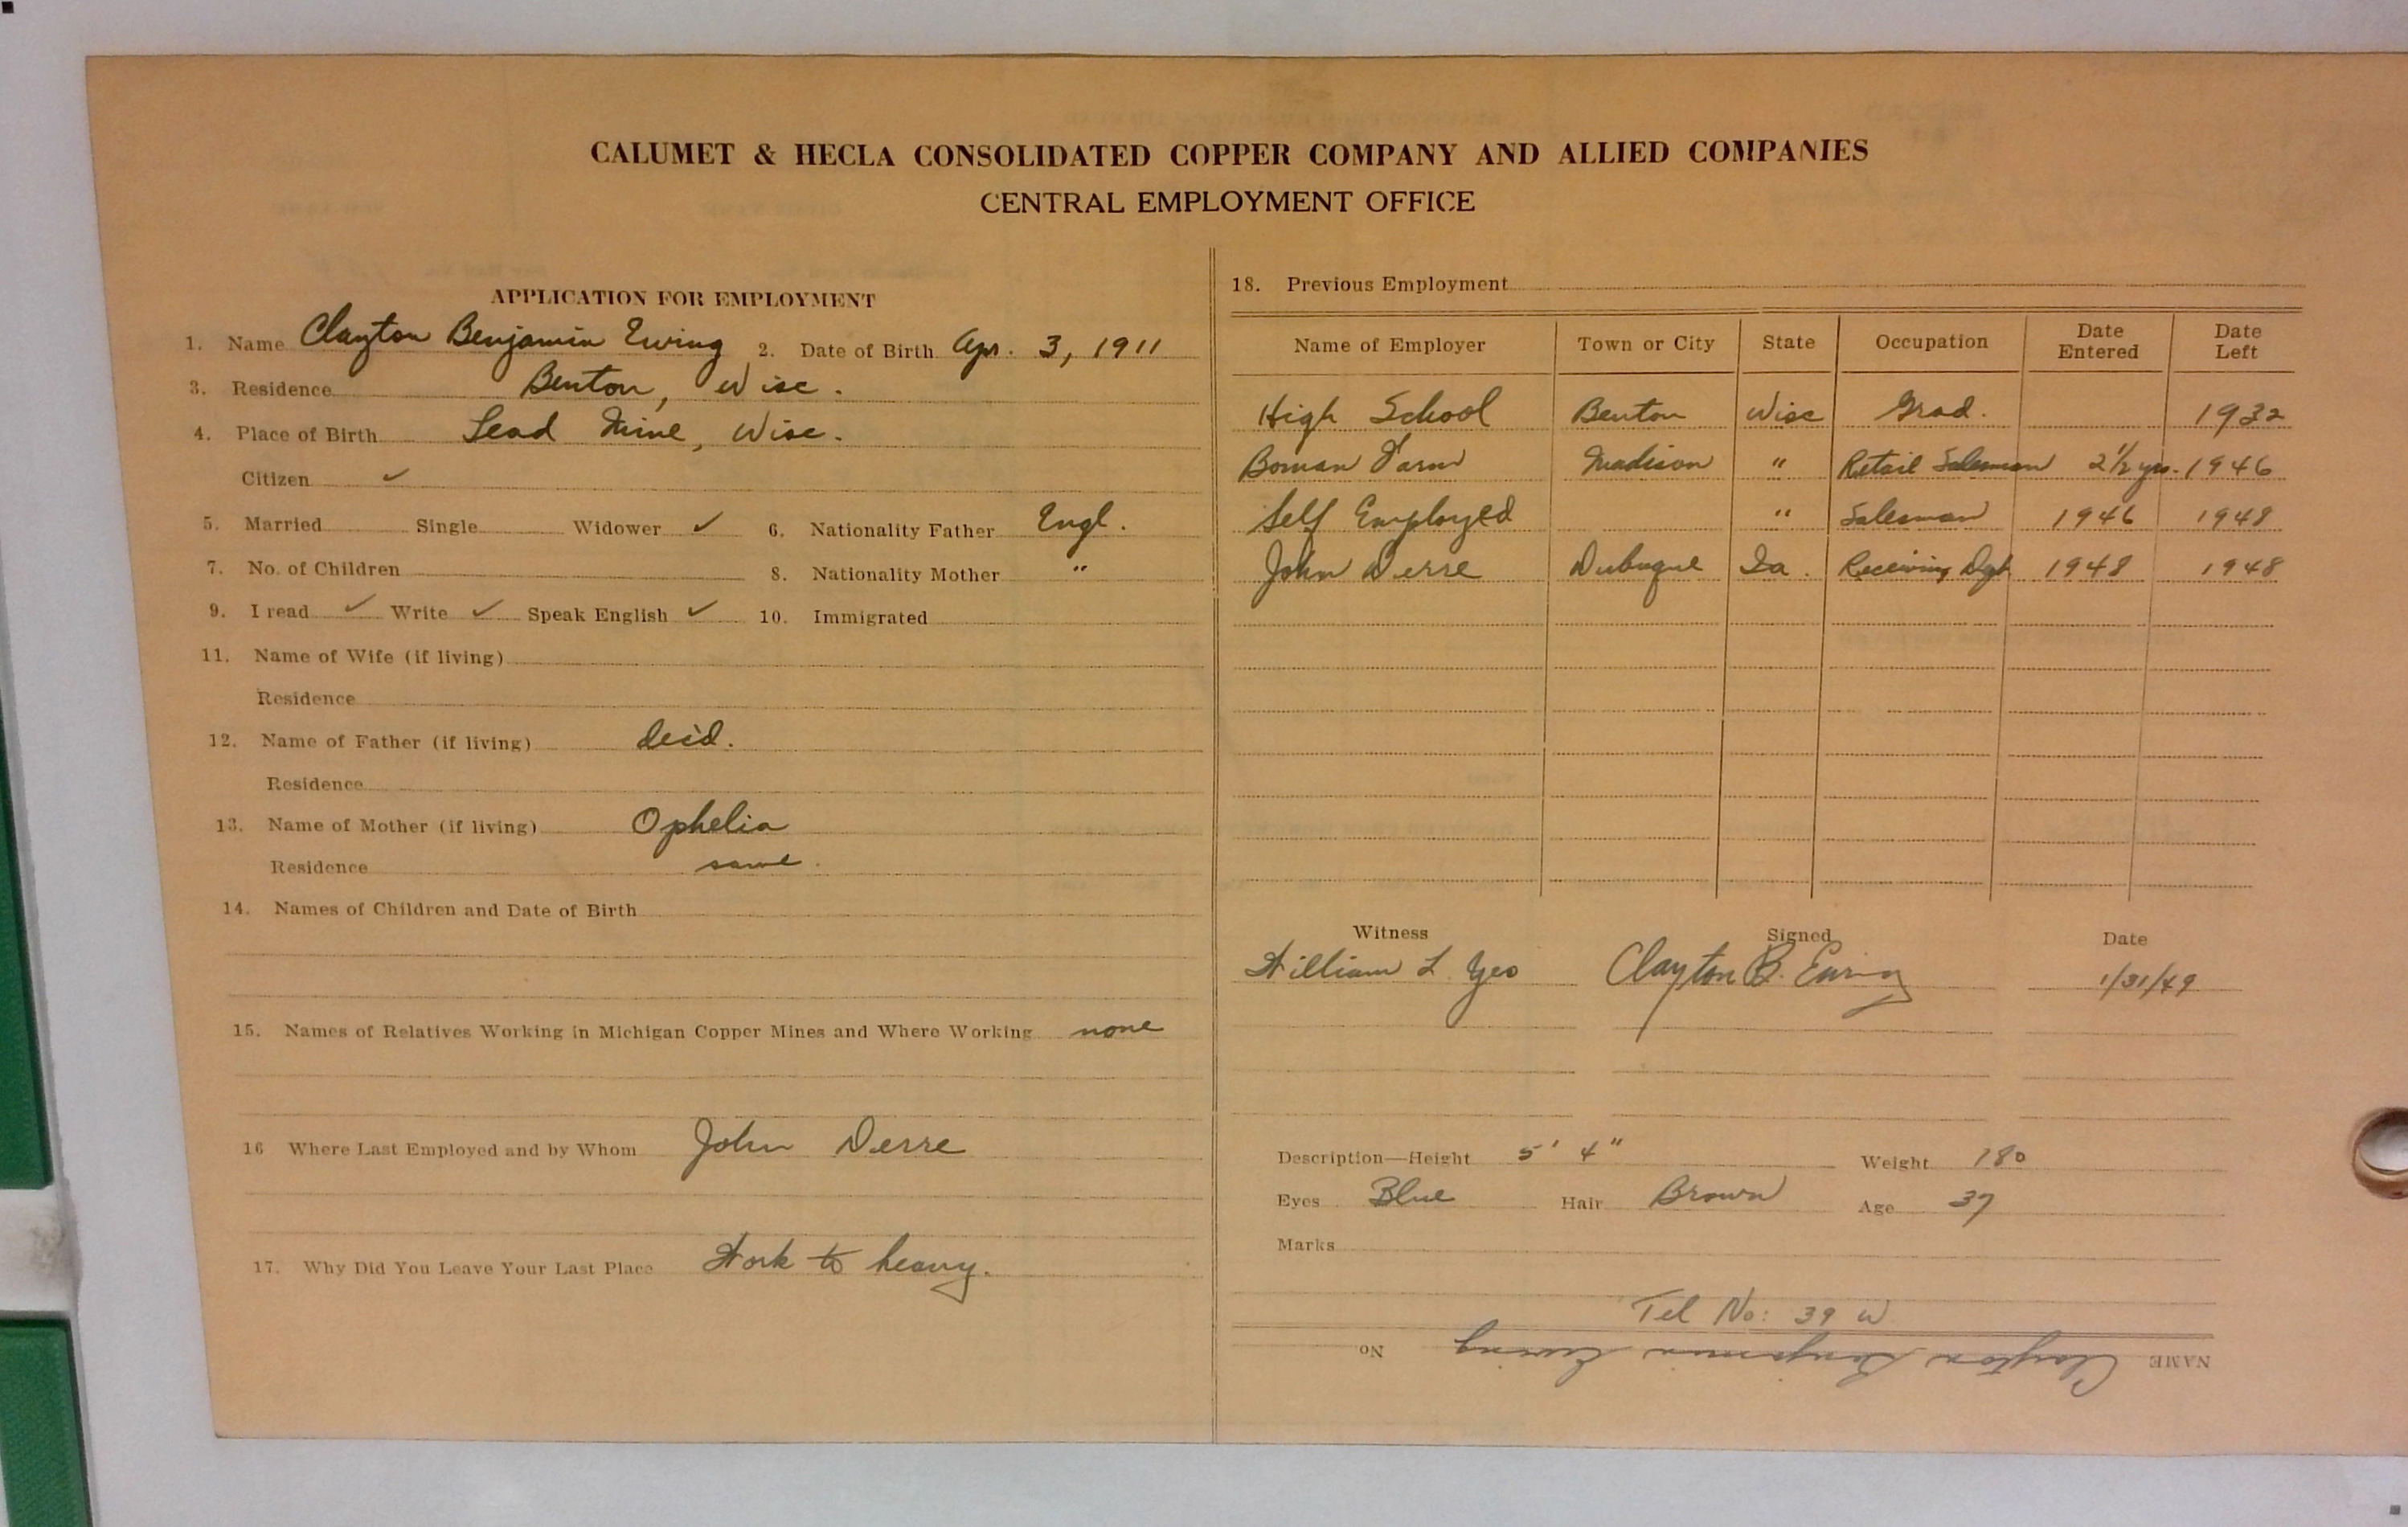 CALUMET & HECLA CONSOLIDATED COPPER COMPANY AND ALLIED COMPANIES
CENTRAL EMPLOYMENT OFFICE
APPLICATION FOR EMPLOYMENT
1. Name Clayton Benjamin Ewing 2. Date of Birth Apr. 3, 1911
3. Residence Benton, Wisc.
4. Place of Birth Lead Mine, Wisc.
Citizen ✓
5. Married Single Widower ✓ 6. Nationality Father Engl.
7. No. of Children 8. Nationality Mother "
9. I read ✓ Write ✓ Speak English ✓ 10. Immigrated
11. Name of Wife (if living)
Residence
12. Name of Father (if living) dec'd.
Residence
13. Name of Mother (if living) Ophelia
Residence same.
14. Names of Children and Date of Birth
15. Names of Relatives Working in Michigan Copper Mines and Where Working none
16 Where Last Employed and by Whom John Derre
17. Why Did You Leave Your Last Place Work to heavy.
18. Previous Employment
Name of Employer Town or City State Occupation Date Entered Date Left
High School Benton Wisc Grad. 1932
Boman Farm Madison " Retail Salesman 2 1/2 yrs. 1946
Self Employed " Salesman 1946 1948
John Derre Dubuque Ia. Receiving Dpt 1948 1948
Witness Signed Date
William L. Yeo Clayton B. Ewing 1/31/49
Description—Height 5' 4" Weight 180
Eyes Blue Hair Brown Age 37
Marks
Tel No: 39 W
NAME Clayton Benjamin Ewing No